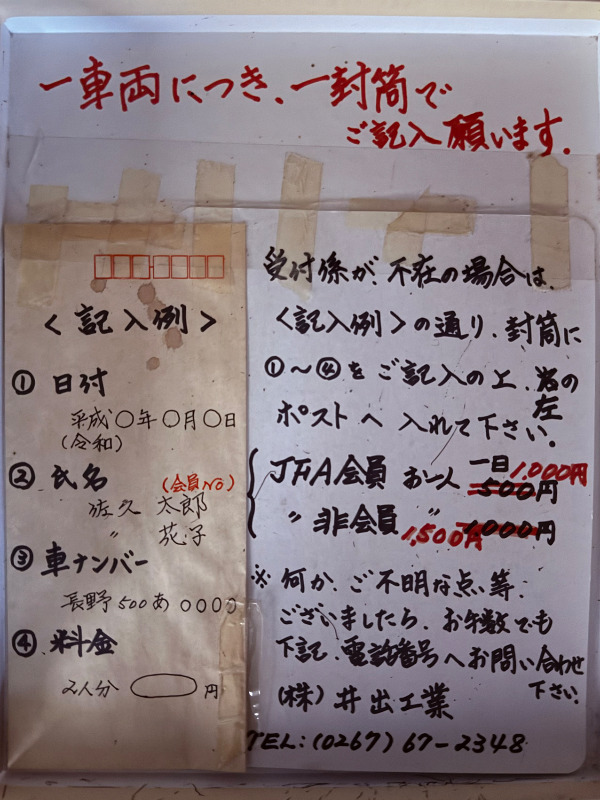 一車両につき、一封筒で
ご記入願います.
<記入例>
① 日付
平成〇年〇月〇日
(令和)
② 氏名 (会員NO)
佐久 太郎
〃 花子
③ 車ナンバー
長野 500 あ 〇〇〇〇
④ 料金
2人分 円
受付係が、不在の場合は、
<記入例>の通り、封筒に
①〜④をご記入の上、右の
左
ポストへ入れて下さい。
JFA会員 お一人 一日 1,000円
500円
〃 非会員 〃 1,000円
1,500円
※ 何か、ご不明な点等、
ございましたら、お手数でも
下記、電話番号へお問い合わせ
下さい.
(株) 井出工業
TEL:(0267)67-2348